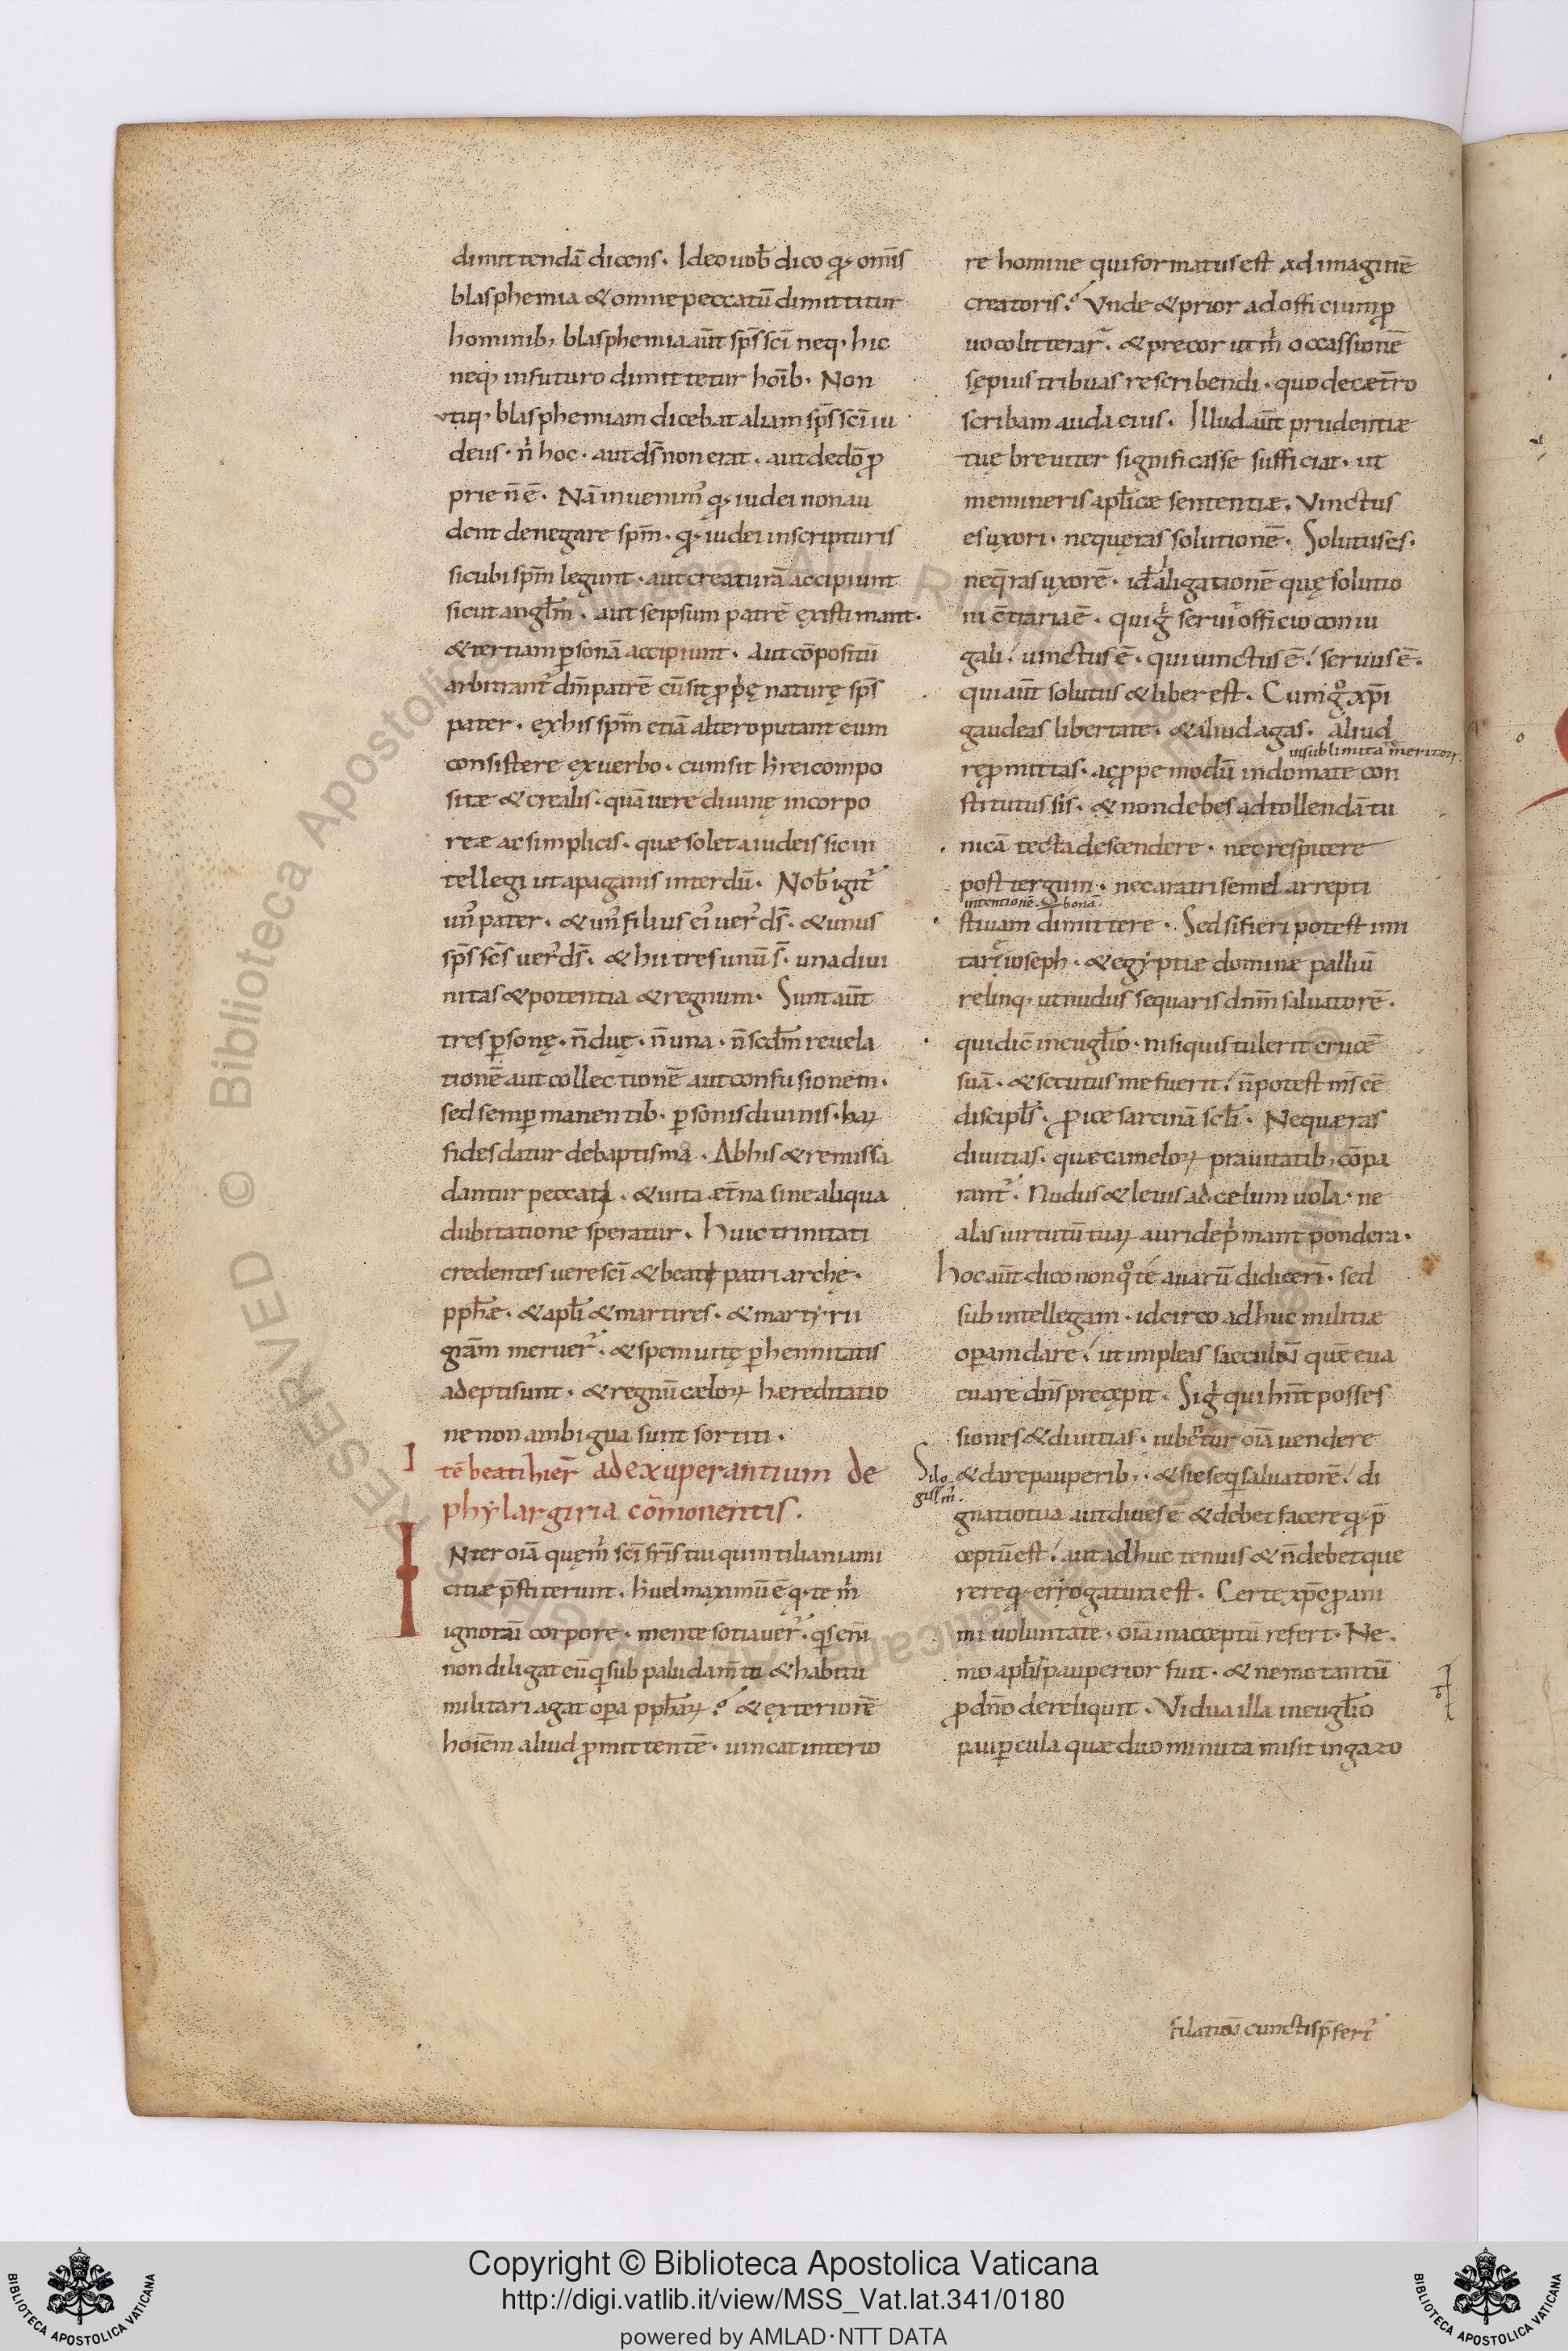 dimittendā dicens. Ideo uob̄ dico qꝫ om̄is
blasphemia & omne peccatū dimittitur
hominib; blasphemia aūt sp̄s sc̄i neq; hic
neq; in futuro dimittetur hoīb. Non
utiq; blasphemiam dicebat aliam sp̄s sc̄i iu
deus. n̄ hoc. aut ds̄ non erat. aut de dō ꝓ
prie n̄ ē. Nā inuenim᾽ qꝫ iudei non au
dent denegare sp̄m. qꝫ iudei in scripturis
sicubi sp̄m legunt. aut creaturā accipiunt
sicut angl̄m. aut seipsum patrē ęxistimant.
& tertiam ꝑsonā accipiunt. Aut cōpositū
arbitrant᾽ dm̄ patrē cū sit ꝓpẹ naturę sp̄s
pater. ęx his sp̄m etiā altero putant eum
consistere ęx uerbo. cum sit h̄ rei compo
sitæ & crealis. quā uere diuinę incorpo
reæ ac simplicis. quæ solet a iudeis sic in
tellegi ut a paganis interdū. Nob̄ igit᾽
un᾽ pater. & un᾽ filius ei᾽ uer᾽ ds̄. & unus
sp̄s sc̄s uer᾽ ds̄. & hii tres unū s̄. una diui
nitas & potentia & regnum. Sunt aūt
tres ꝑsonę. n̄ duę. n̄ una. n̄ scd̄m reuela
tionē aut collectionē aut confusionem.
sed semꝑ manentib. ꝑsonis diuinis. haꝝ
fides datur de baptisma. Ab his & remissa
dantur peccata. & uita æt̄na sine aliqua
dubitatione speratur. Huic trinitati
credentes uere sc̄i & beati patriarchę.
pph̄æ. & apl̄i & martires. & martyrii
grām meruer̄. & spem uitę ꝑhennitatis
adepti sunt. & regnū cælorꝝ hæreditatio
ne non ambigua sunt sortiti.
I
tē beati hier̄ ad exuperantium de
phylargiria cōmonentis.
INter oīa quę m̄ sc̄i fr̄is tui quintiliani ami
citiæ p̄stiterunt. h̄ uel maximū ē qꝫ te m̄
ignotū corpore. mente sotiauer̄. qs̄ enī
non diligat eū q̄ sub paludam̄to & habitu
militari agat oꝑa pph̄aꝝ? & ęxteriorē
hoīem aliud ꝓmittentē. uincat interio
re homine qui formatus est ad imaginē
creatoris? Vnde & prior ad officium ꝓ
uoco litterar̄. & precor ut m̄ occassionē
sępius tribuas rescribendi. quo de cæt̄ro
scribam audacius. Illud aūt prudentiæ
tuę breuiter significasse sufficiat. ut
memineris apl̄icæ sententiæ. Vinctus
es uxori. ne quęras solutionē. Solutus es.
ne q̄ras uxorē. id ē alligationē quę solutio
ni c̄traria ē. qui g̊ seruit officio coniu
gali? uinctus ē. qui uinctus ē? seruus ē.
qui aūt solutus & liber est. Cum g̊ xp̄i
gaudeas libertate. & aliud agas. aliud
in sublimitatē meritorꝝ.
reꝓmittas. ac ꝓpemodū in domate con
stitutus sis. & non debes ad tollendā tu
nicā tecta descendere. nec respicere
post tergum. nec aratri semel arrepti
intentionē bonā.
stiuam dimittere. Sed si fieri potest imi
tare ioseph. & egyptiæ dominæ palliū
relinq; ut nudus sequaris dnm̄ saluatorē.
qui dic̄ in eugl̄io. nisi quis tulerit crucē
suā. & secutus me fuerit? n̄ potest ms̄ eē
discipl̄s. ꝓice sarcinā scl̄i. Ne quæras
diuitias. quæ camelorꝝ prauitatib; cōpa
rant᾽. Nudus & leuis ad cælum uola. ne
alas uirtutū tuaꝝ auri dep̄mant pondera.
Hoc aūt dico non qº te auarū didicerī. sed
sub intellegam. idcirco adhuc militiæ
oꝑam dare? ut impleas sacculū quē eua
cuare dn̄s pręcępit. Si g̊ qui hn̄t posses
siones & diuitias. iubent᾽ oīa uendere
Silo
gism᾽.
& dare pauperib;. & sic seq̄ saluatorē? di
gnatio tua aut diues ē & debet facere qꝫ p̄
ceptū est? aut adhuc tenuis & n̄ debet que
rere qꝫ errogatura est. Certe xp̄c ꝓ ani
mi uoluntate. oīa in acceptū refert. Ne
mo apl̄is pauperior fuit. & nemo tantū
ꝓ dn̄o dereliquit. Vidua illa in eugl̄io
pauꝑcula quæ duo minuta misit in gazo
filatiū cunctis p̄fert᾽
Copyright © Biblioteca Apostolica Vaticana
http://digi.vatlib.it/view/MSS_Vat.lat.341/0180
powered by AMLAD·NTT DATA
BIBLIOTECA APOSTOLICA VATICANA
BIBLIOTECA APOSTOLICA VATICANA